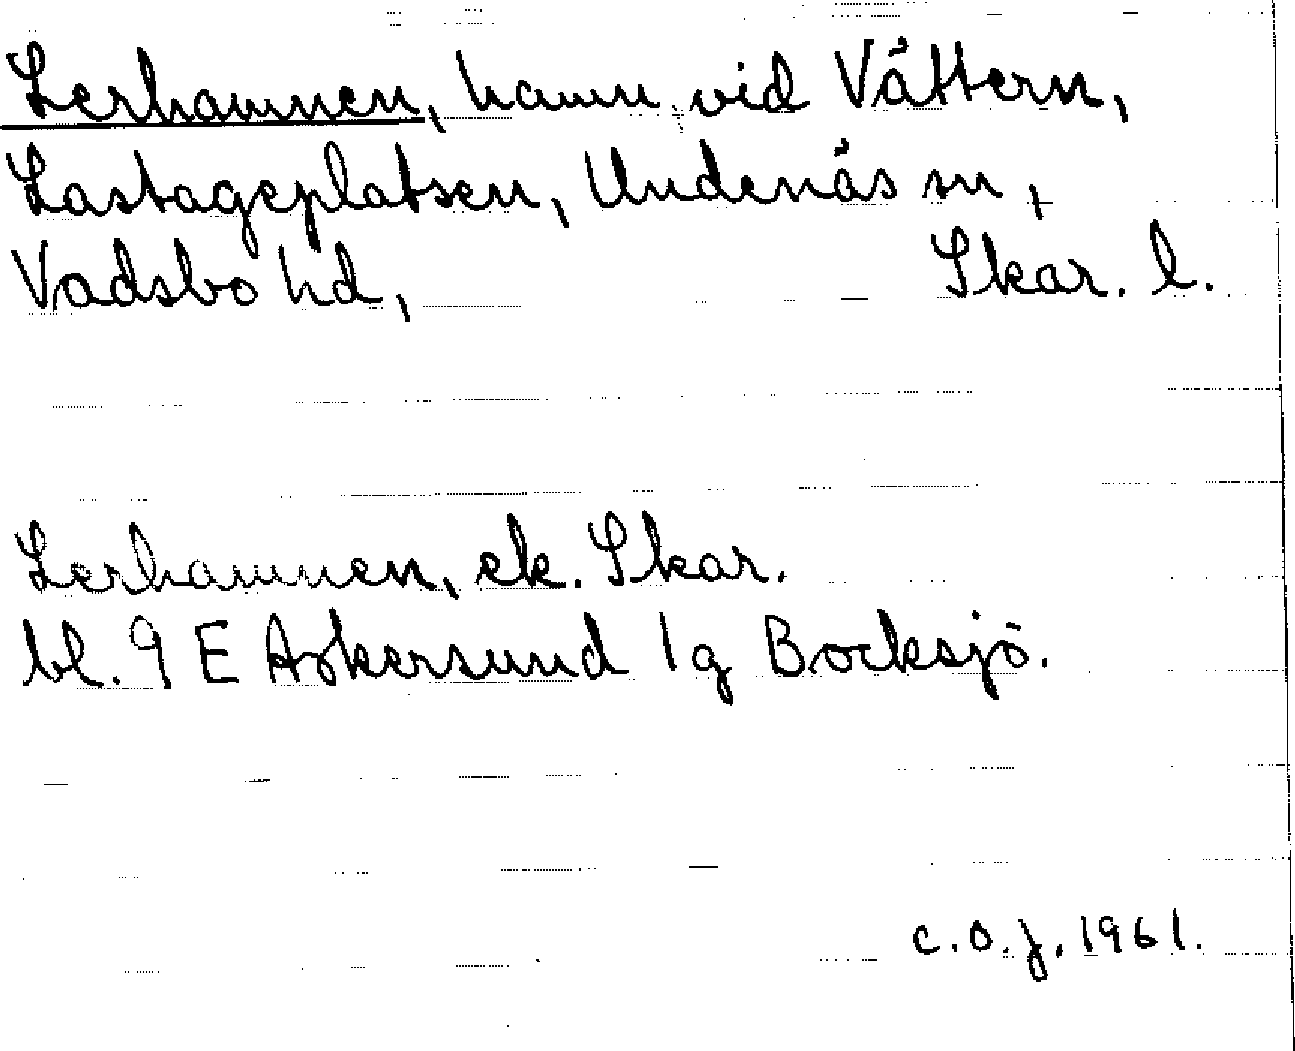 Lerhamnen, hamn vid Vättern,
Lastageplatsen, Undenäs sn,
Vadsbo hd, Skar. l.
Lerhamnen, ek. Skar.
bl. 9 E Askersund 1g Bocksjö.
C.O.J. 1961.